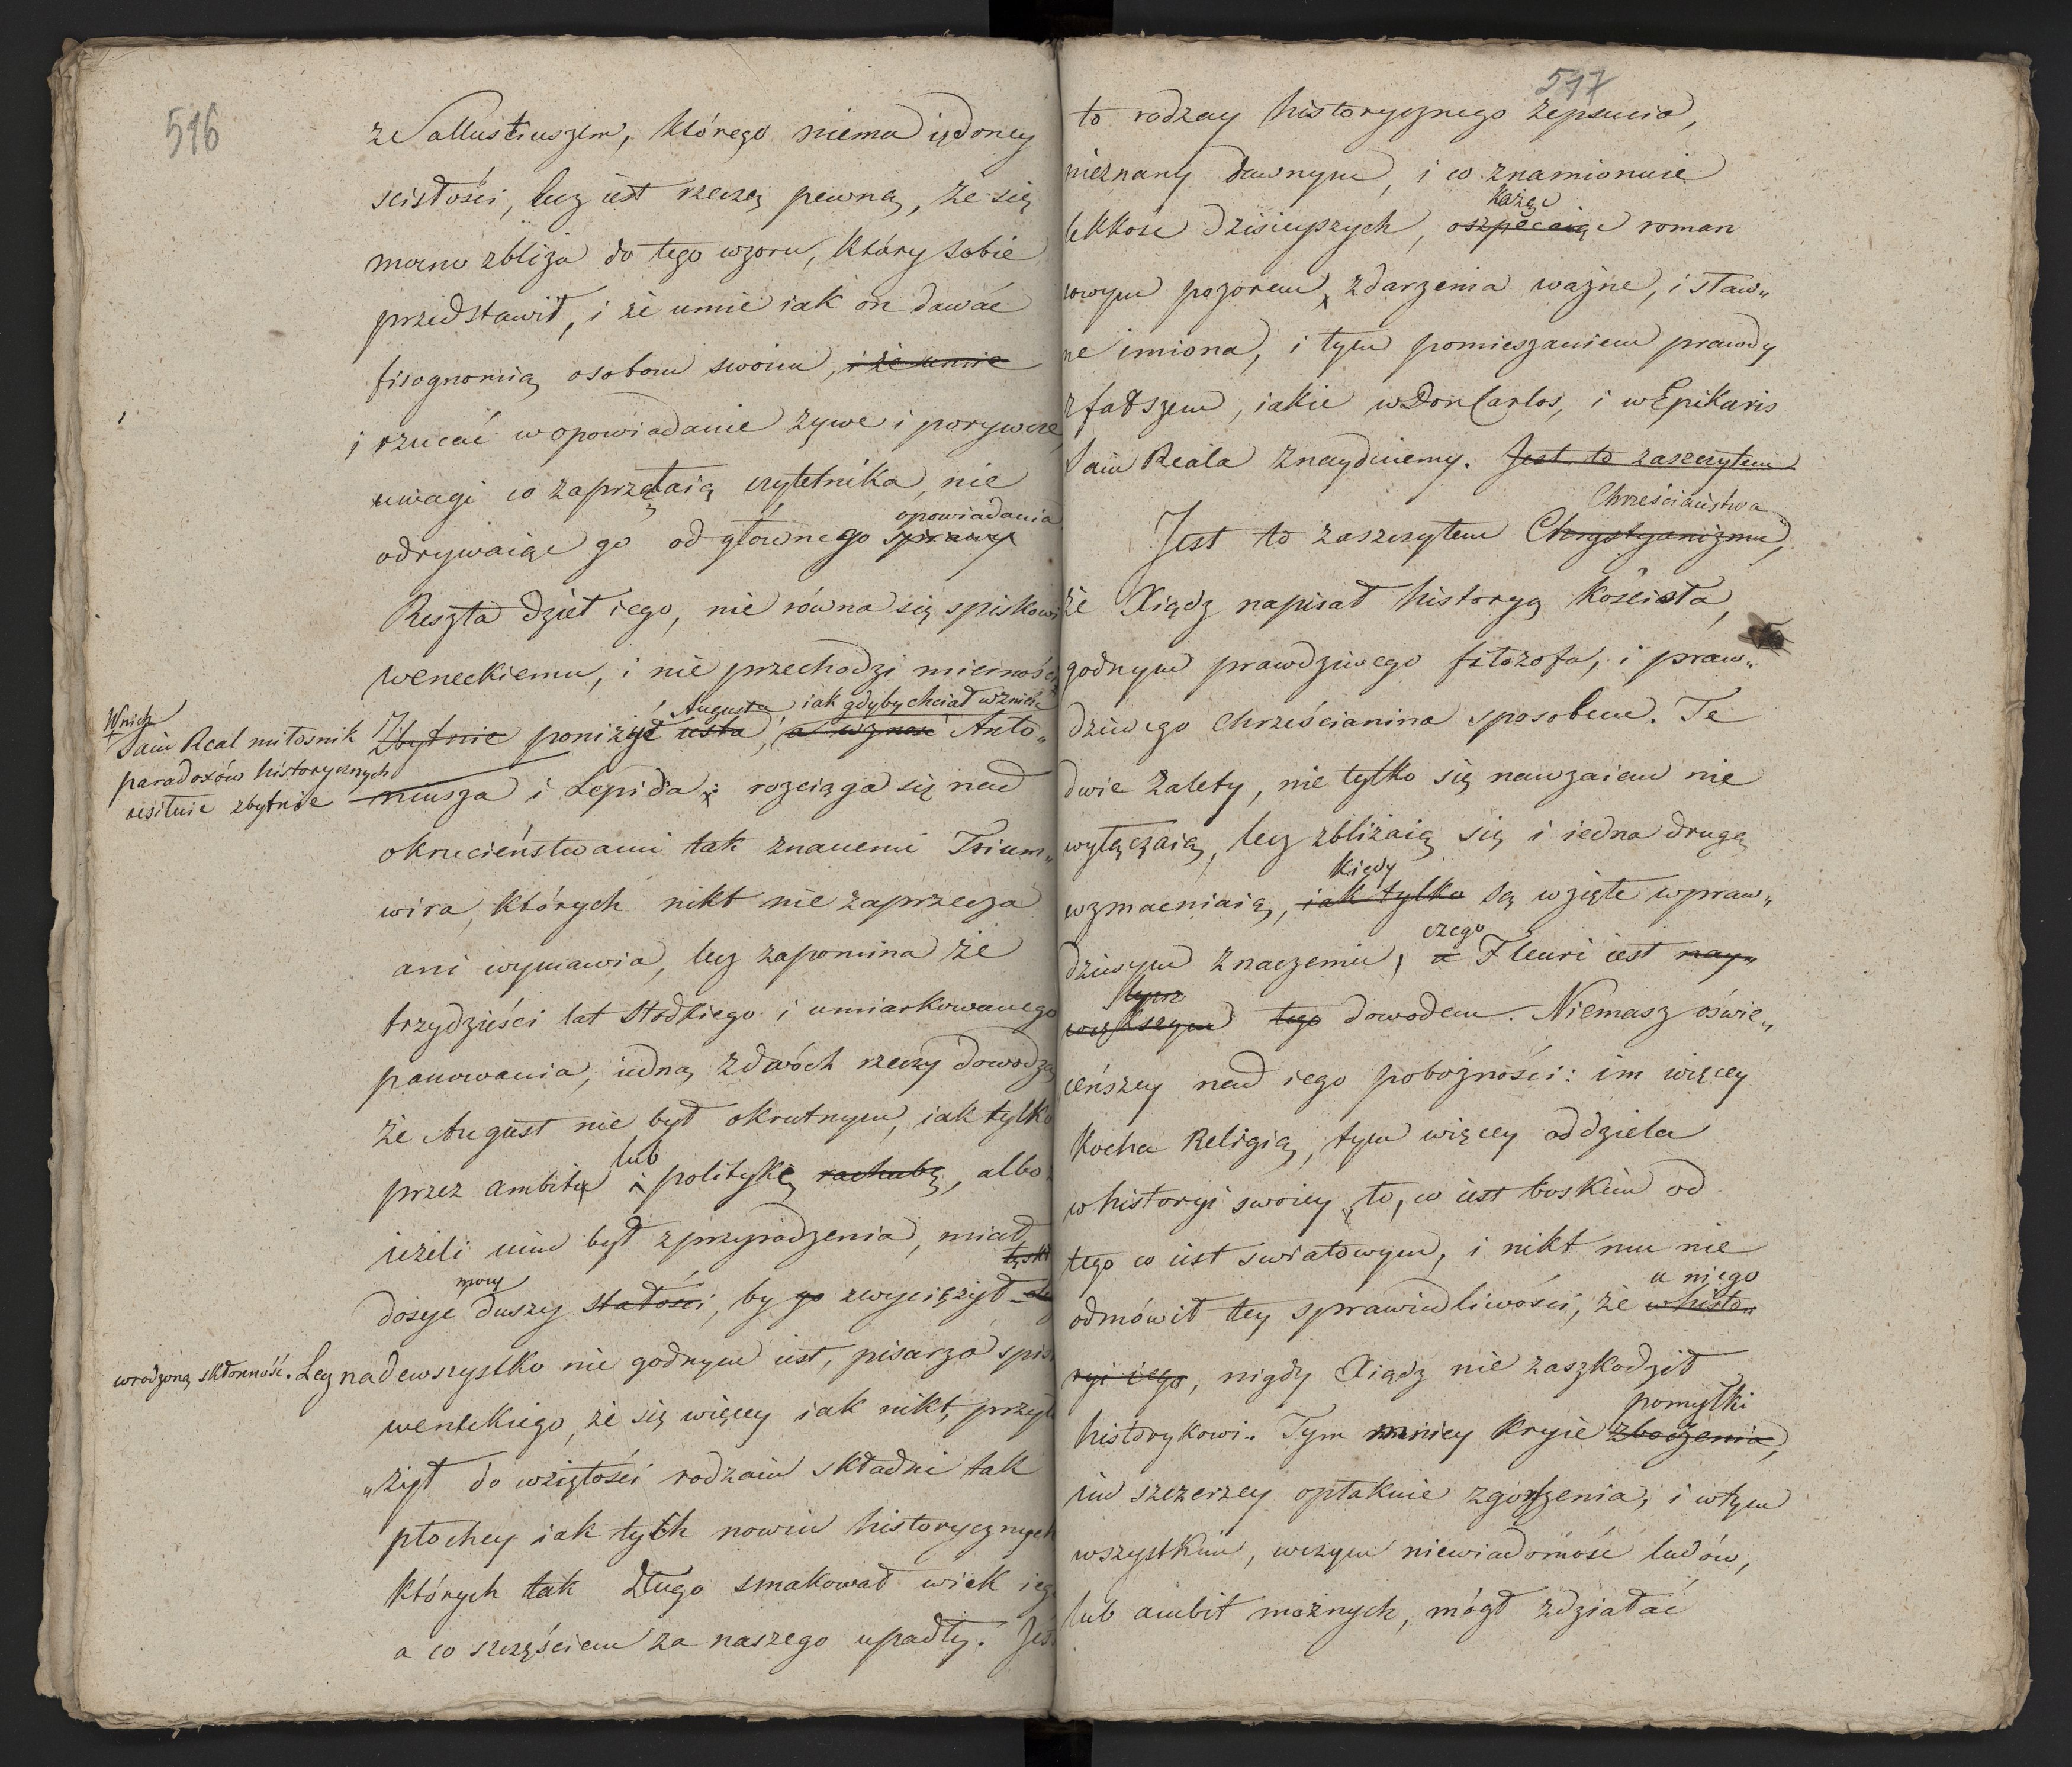 516
ze Sallustiuszem, którego niema iędrney
scisłości, lecz iest rzeczą pewną, że się
mocno zbliża do tego wzoru, który sobie
przedstawił, i że umie iak on dawać
fisognomią osobom swoim, i że umie
i rzucać w opowiadanie żywe i porywcze,
uwagi co zaprzątaią czytelnika, nie
opowiadania
odrywaiąc go od głownego sprawy
Reszta dzieł iego, nie równa się spiskowi
weneckiemu, i nie przechodzi mierności
Augusta, iak gdyby chciał wznieść
W nich
Sain Real miłosnik
paradoxów historycznych
usiłuie zbytnie
Zbytnie poniżyć usta, a wznosi Anto„
niusza i Lepida; rozciąga się nad
okrucieństwami tak znanemi Trium„
wira, których nikt nie zaprzecza
ani wymawia, lecz zapomina że
trzydzieści lat słodkiego i umiarkowanego
panowania, iedną z dwóch rzeczy dowodzą
że August nie był okrutnym, iak tylko
lub
przez ambitu i politykę rachubę, albo
ieżeli nim był z przyrodzenia, miał
mocy
dosyć duszy stałości, by go zwyciężył
wrodzoną skłonność. Lecz nadewszystko nie godnym iest, pisarza spis
weneckiego, że się więcey iak nikt, przyło
„żył do wziętości rodzaiu składni tak
płochey iak tych nowin historycznych
których tak długo smakował wiek iego
a co szczęściem za naszego upadły. Jest
517
to rodzay historycznego zepsucia,
nieznany dawnym, i co znamionuie
każąc
lekkość dzisieyszych, oszpecaiąc roman
sowym pozorem zdarzenia ważne, i sław„
ne imiona, i tym pomieszaniem prawdy
z fałszem, iakie w Don Carlos, i w Epikaris
Sain Reala znaydziemy. Jest to zaszczytem
Chrześciaństwa
Jest to zaszczytem Chrystyanizmu,
że Xiądz napisał historyą kościoła,
godnym prawdziwego filozofa, i praw„
dziwego chrześcianina sposobem. Te
dwie zalety, nie tylko się nawzaiem nie
wyłączaią, lecz zbliżaią się i iedna drugą
kiedy
wzmacniaią, iak tylko są wzięte w praw„
czego
dziwym znaczeniu, a Fleuri iest nay„
większym tego dowodem. Niemasz oświe„
ceńszey nad iego pobożności: im więcey
kocha Religią, tym więcey oddziela
w historyi swoiey to, co iest boskim od
tego co iest swiatowym, i nikt mu nie
u niego
odmówił tey sprawiedliwości, że w histo„
ryi iego, nigdy Xiądz nie zaszkodził
pomyłki
historykowi. Tym mniey kryie zboczenia,
im szczerzey opłakuie zgorszenia, i w tym
wszystkim, w czym niewiadomość ludów,
lub ambit możnych, mógł zdziałać